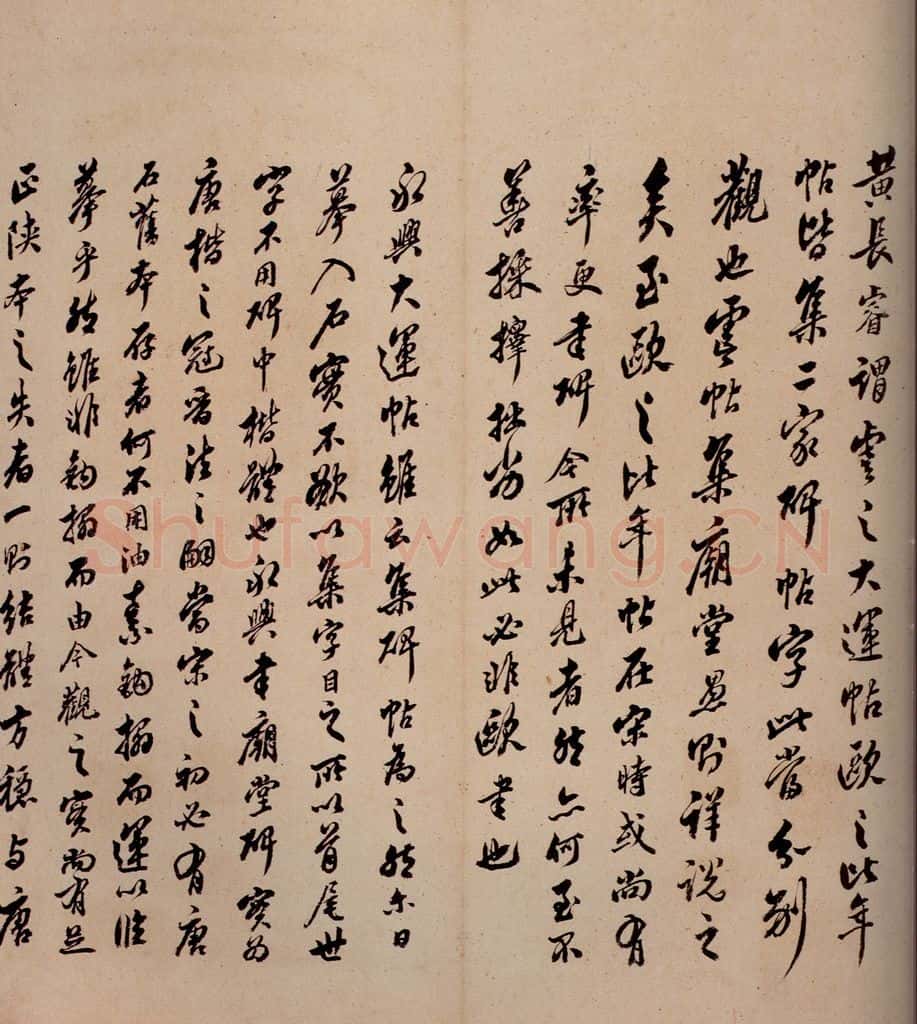 黄長睿謂虞之大運帖歐之比年
帖皆集二家碑帖字此當分別
觀也虞帖集廟堂愚則詳説之
矣至歐之比年帖在宋時或尚有
率更書碑今所未見者然亦何至不
善採擇拙劣如此必非歐書也
永興大運帖雖云集碑帖為之然亦曰
摹入石實不敢以集字目之所以首尾廿
字不用碑中楷體也永興書廟堂碑實為
唐楷之冠晉法之嗣當宋之初必有唐
石舊本存者何不用油素鉤搨而運以臨
摹乎然雖非鉤搨而由今觀之實尚有足
正陝本之失者一則結體方穩与唐
Shufawang.CN